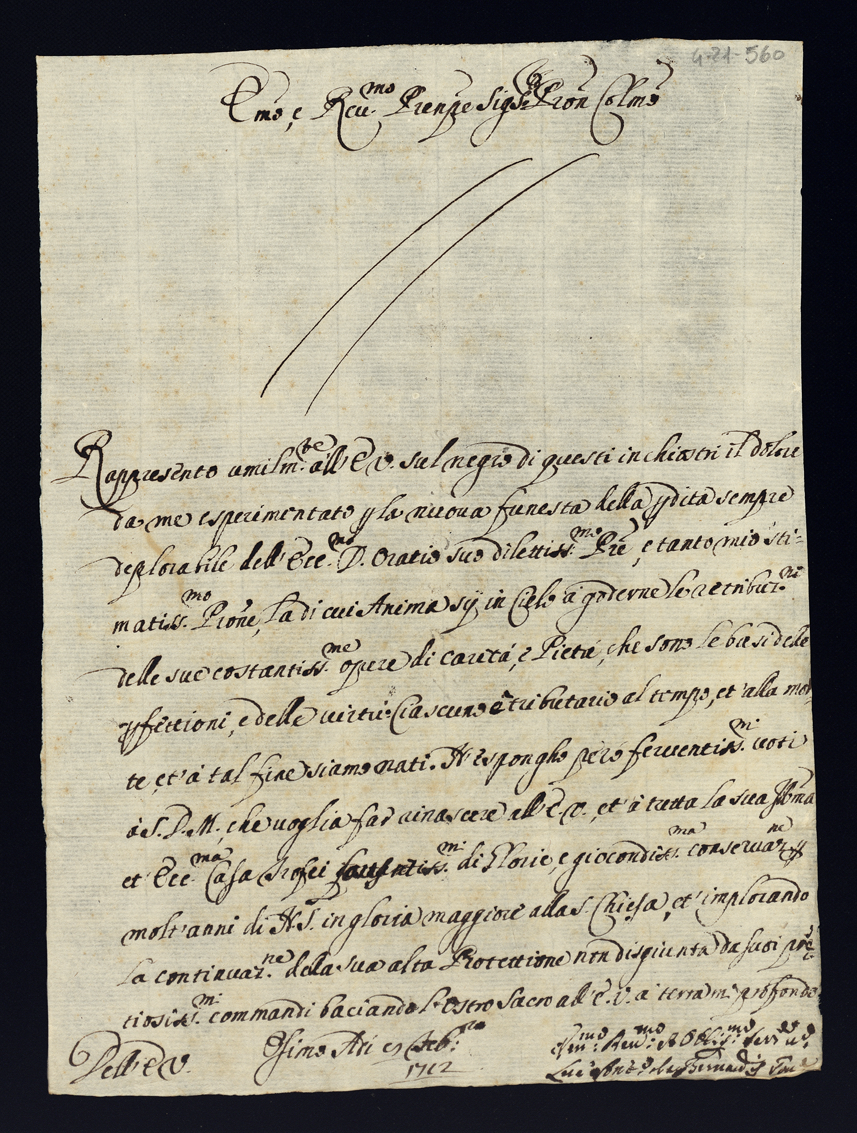 4-21-560
Emo, e Reu.mo Prenpe Sig.r Pron Colmo
Rappresento umilm.te all'E. V. sul negro di questi inchiostri il dolore
da me esperimentato p la nuova funesta della pdita sempre
deplorabile dell'Ecc.mo D. Oratio suo dilettiss.mo Pre, e tanto mio sti-
matiss.mo Prone, La di cui Anima sij in Cielo à goderne le retribuz.ni
delle sue costantiss.me opere di carità, e Pietà, che sono le basi dele
pfettioni, e delle virtù. Ciascuno è tributario al tempo, et' alla mor-
te, et' à tal fine siamo nati. N'espongho però ferventiss.mi voti
à S. D. M., che voglia far rinascere all'E. V., et' à tutta la sua Illma
et Ecc.ma Casa Trofei di Glorie, e giocondiss.ma conservaz.ne p
molt'anni di N. S. in gloria maggiore alla S. Chiesa, et' implorando
la continuaz.ne della sua alta Protettione non disgiunta da suoi pre-
tiosiss.mi commandi baciando l'Ostro Sacro all'E. V. à terra mi profondo
Dell'E. V. Osimo Feb.ro
1712